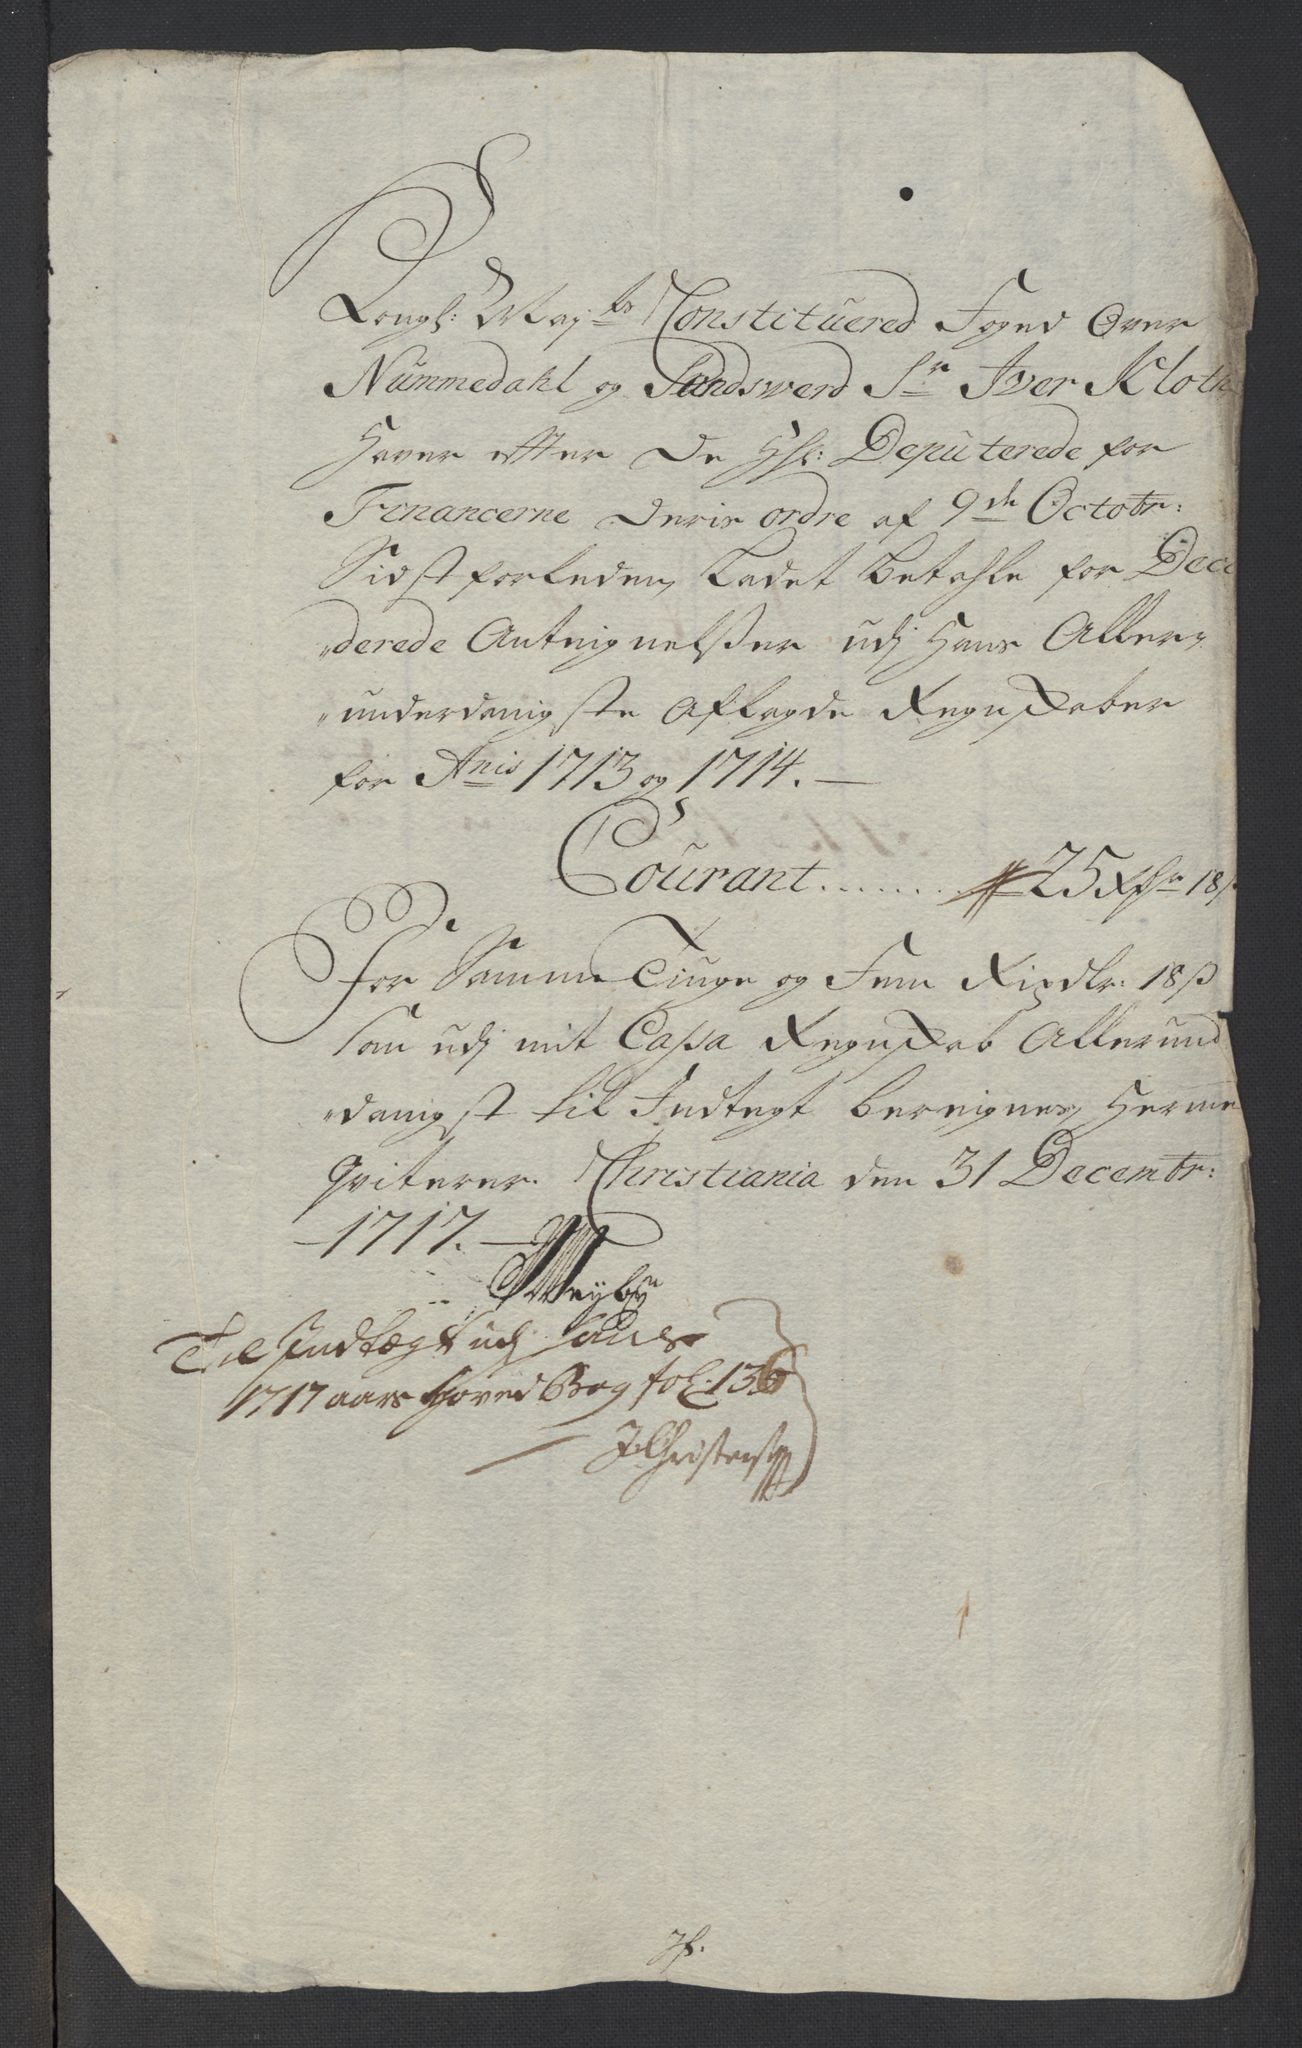 Kongl: Mayts Constituered Foged Over
Nummedahl og Sandswerd Sr Iver Kloth
Haver efter De HH: Deputerede for
Financerne deris ordre af 9de Octobr:
Sidstforleden, ladet betahle for Deci
„derede Anteignelßer udj Hans Aller„
„underdanigste Aflagde Regnskaber
for Anis 1713 og 1714. —
Courant ........ 25 Rdr 18 ß
For Samme Tiuge og Fem Rixdlr: 18 ß
som udj mit Cassa Regnskab Allerund
„danigst til Indtegt bereignes, Herme
Qviterer. Christiania den 31 Decembr:
— 1717. —
Meyb
Til Indtægt udj
1717 aars Hoved Bog fol: 136
J Christens